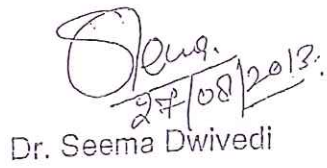 Seema.
27/08/2013.
Dr. Seema Dwivedi